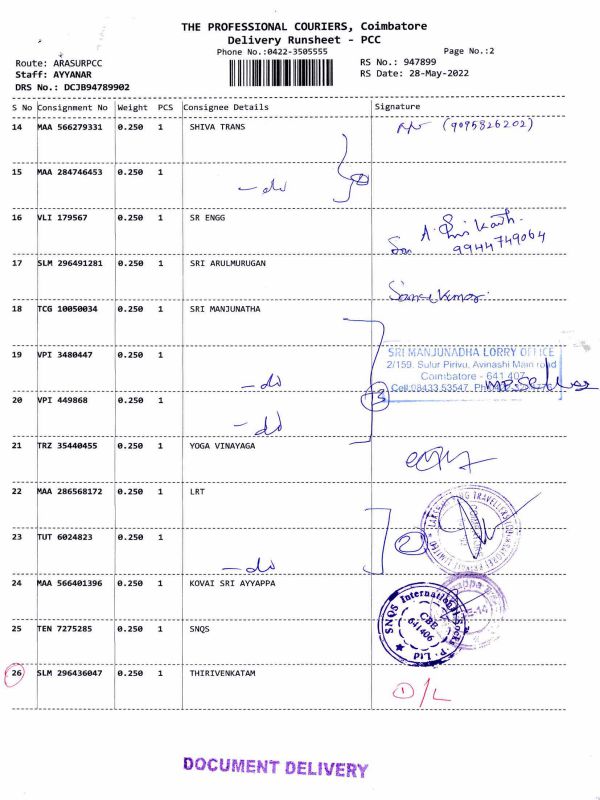 THE PROFESSIONAL COURIERS, Coimbatore
Delivery Runsheet - PCC
Phone No.:0422-3505555
Page No.:2
Route: ARASURPCC
RS No.: 947899
Staff: AYYANAR
RS Date: 28-May-2022
DRS No.: DCJB94789902
S No Consignment No Weight PCS Consignee Details Signature
14 MAA 566279331 0.250 1 SHIVA TRANS (9095826202)
15 MAA 284746453 0.250 1
-do
16 VLI 179567 0.250 1 SR ENGG
9944749064
17 SLM 296491281 0.250 1 SRI ARULMURUGAN
18 TCG 10050034 0.250 1 SRI MANJUNATHA
19 VPI 3480447 0.250 1
-do
SRI MANJUNADHA LORRY OFFICE
2/159, Sulur Pirivu, Avinashi Main road
Coimbatore - 641 407
Cell:08433 53547
3
20 VPI 449868 0.250 1
-do
21 TRZ 35440455 0.250 1 YOGA VINAYAGA
22 MAA 286568172 0.250 1 LRT
23 TUT 6024823 0.250 1
-do
2
24 MAA 566401396 0.250 1 KOVAI SRI AYYAPPA
SNQS International Socks P. Ltd
CBE
641406
25 TEN 7275285 0.250 1 SNQS
26 SLM 296436047 0.250 1 THIRIVENKATAM
1 D/L
DOCUMENT DELIVERY